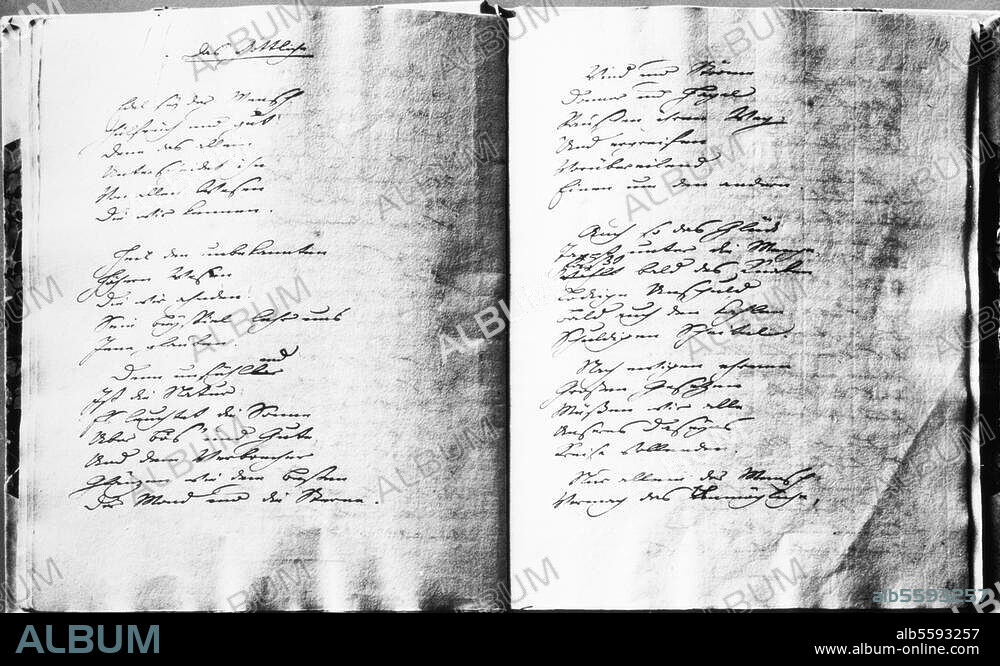 Das Göttliche
Edel sey der Mensch
Hülfreich und gut!
Denn das allein
Unterscheidet ihn
Von allen Wesen
Die wir kennen.
Heil den unbekannten
Höhern Wesen
Die wir ahnden!
Sein Beyspiel lehr uns
Jene glauben.
Denn unfühlend
Ist die Natur:
Es leuchtet die Sonne
Über Bös' und Gute
Und dem Verbrecher
Glänzen wie dem Besten
Der Mond und die Sterne.
Wind und Ströme
Donner und Hagel
Rauschen ihren Weg
Und ergreifen
Vorübereilend
Einen um den andern.
Auch so das Glück
Tappt unter die Menge
bald des Knaben
Lockige Unschuld
Bald auch den kahlen
Schuldigen Scheitel.
Nach ewigen ehrnen
Großen Gesetzen
Müßen wir alle
Unseres Daseyns
Kreise vollenden.
Nur allein der Mensch
Vermag das Unmögliche,
alb5593257
ALBUM
alb5593257
www.album-online.com